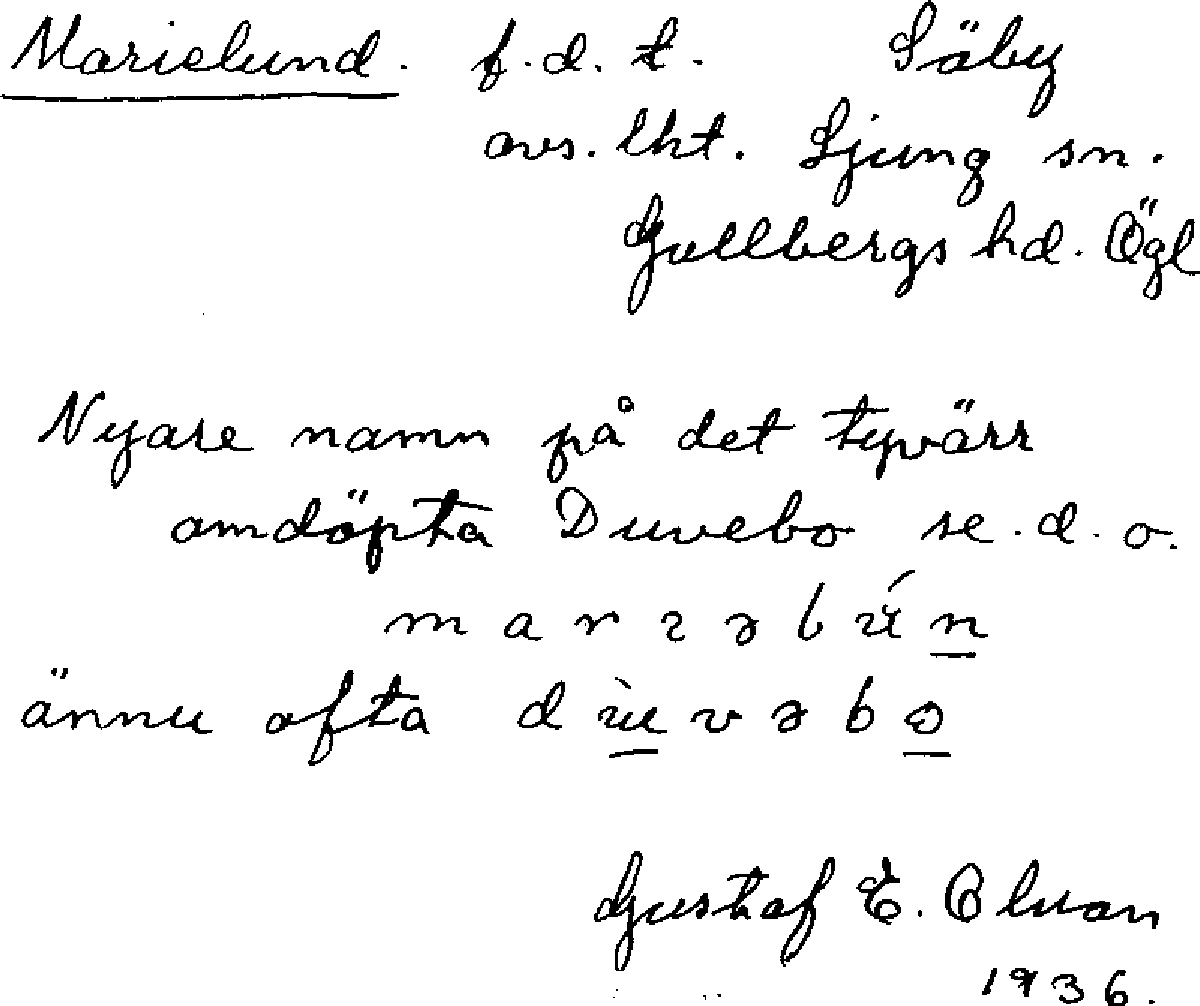 Marielund. f.d.t. Säby
avs. lht. Ljung sn.
Gullbergs hd. Ögl
Nyare namn på det tyvärr
omdöpta Duvebo se.d.o.
marɪəlún
ännu ofta dùvəbo
Gustaf E. Olson
1936.